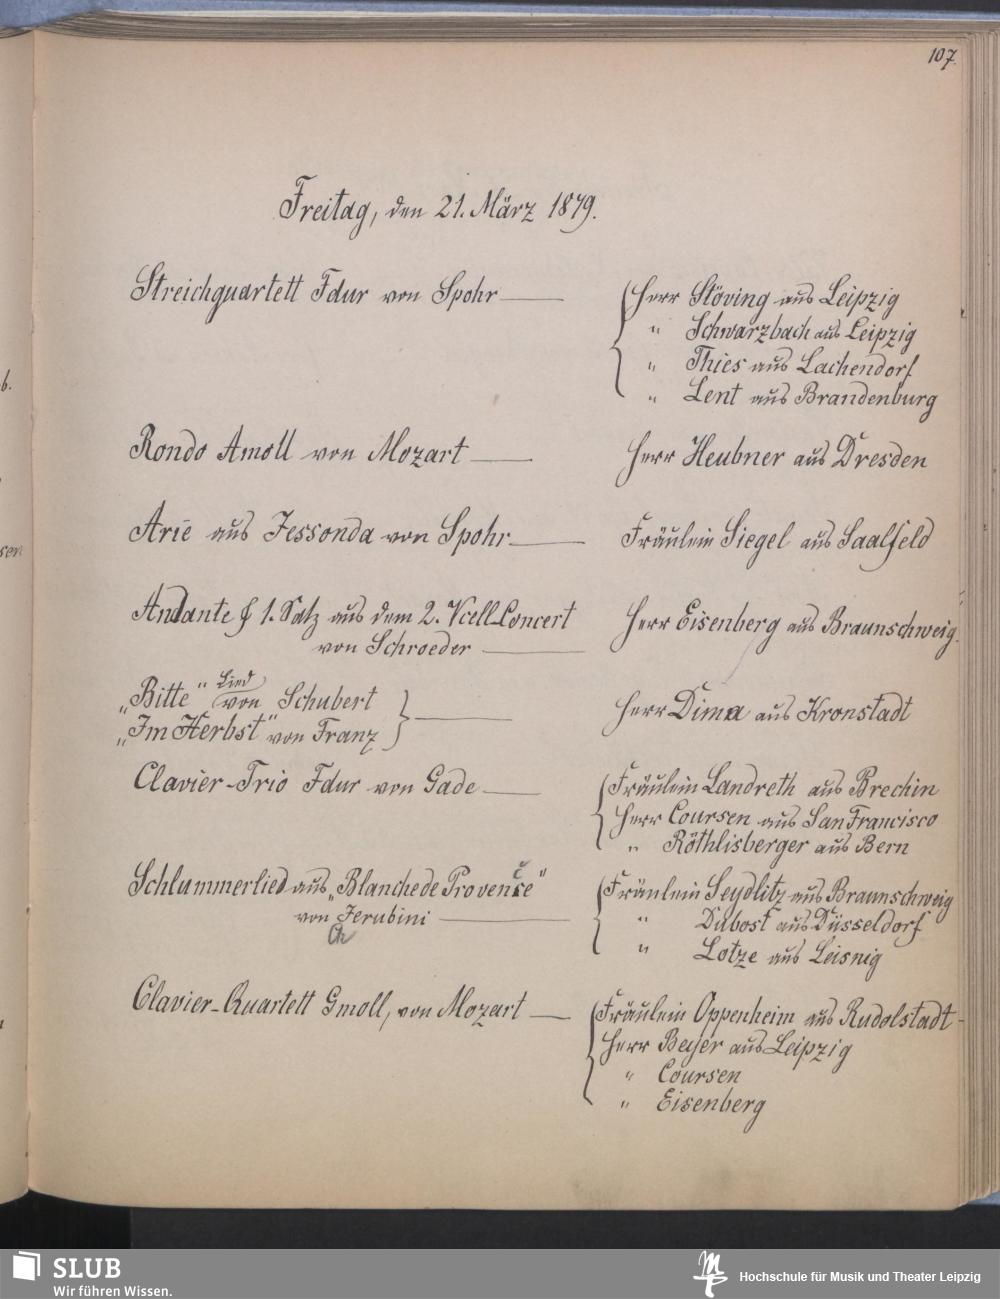 107.
Freitag, den 21. März 1879.
Streichquartett Fdur von Spohr — Herr Stöving aus Leipzig
" Schwarzbach aus Leipzig
" Thies aus Lachendorf
" Lent aus Brandenburg
Rondo Amoll von Mozart — Herr Heubner aus Dresden
Arie aus Jessonda von Spohr — Fräulein Siegel aus Saalfeld
Andante & 1. Satz aus dem 2. Vcell-Concert Herr Eisenberg aus Braunschweig.
von Schroeder —
Lied
„Bitte" von Schubert
„Im Herbst" von Franz — Herr Dima aus Kronstadt
Clavier-Trio Fdur von Gade — Fräulein Landreth aus Brechin
Herr Coursen aus San Francisco
" Röthlisberger aus Bern
Schlummerlied aus „Blanche de Provence" Fräulein Seydlitz aus Braunschweig
von Jerubini — " Dubost aus Düsseldorf
Ch
" Lotze aus Leisnig
Clavier-Quartett Gmoll, von Mozart — Fräulein Oppenheim aus Rudolstadt -
Herr Beyer aus Leipzig
" Coursen
" Eisenberg
b.
sen
SLUB
Wir führen Wissen.
Hochschule für Musik und Theater Leipzig